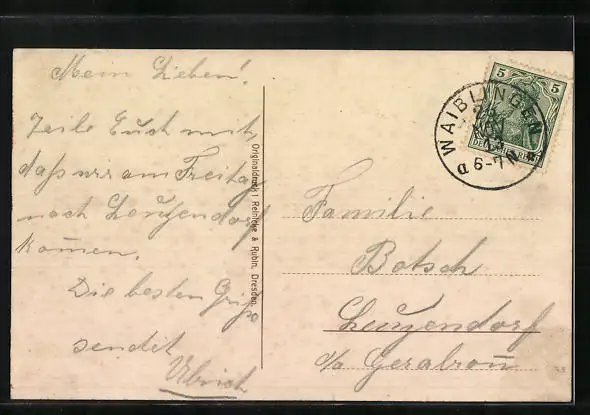 Mein Lieben!
Teile Euch mit,
daß wir am Freitag
nach Leuzendorf
kommen.
Die besten Grüße
sendet
Ulrich
Originaldruck Reinicke & Rubin, Dresden.
5 5
DEUTSCHES REICH
WAIBLINGEN
6-7 N
a
Familie
Botsch
Leuzendorf
o/a Gerabronn